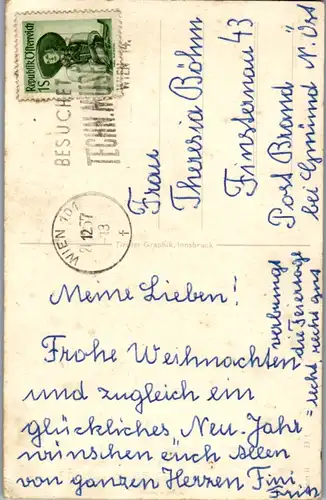 Republik Österreich
1S
BESUCHET
TECHN. MUS
WIEN 14.
WIEN 101
12.57
-13
f
Frau
Theresia Böhm
Finsternau 43
Post Brand
bei Gmünd N. Öst
Tiroler Graphik, Innsbruck
Meine Lieben!
Frohe Weihnachten
und zugleich ein
glückliches Neu-Jahr
wünschen euch allen
von ganzen Herzen Fini
Fritz
verbringt
die Feiertage
recht recht gut